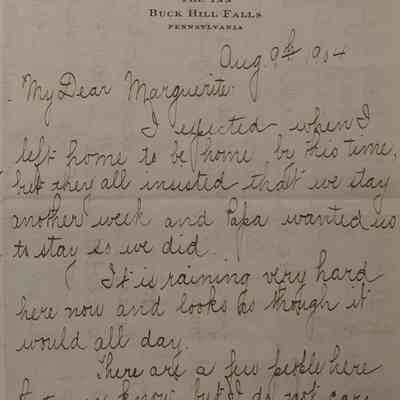 THE INN
BUCK HILL FALLS
PENNSYLVANIA
Aug. 9th, 1904
My Dear Marguerite:
I expected when I
left home to be home by this time,
but they all insisted that we stay
another week and Papa wanted us
to stay so we did.
It is raining very hard
here now and looks as though it
would all day.
There are a few people here
know but I do not care